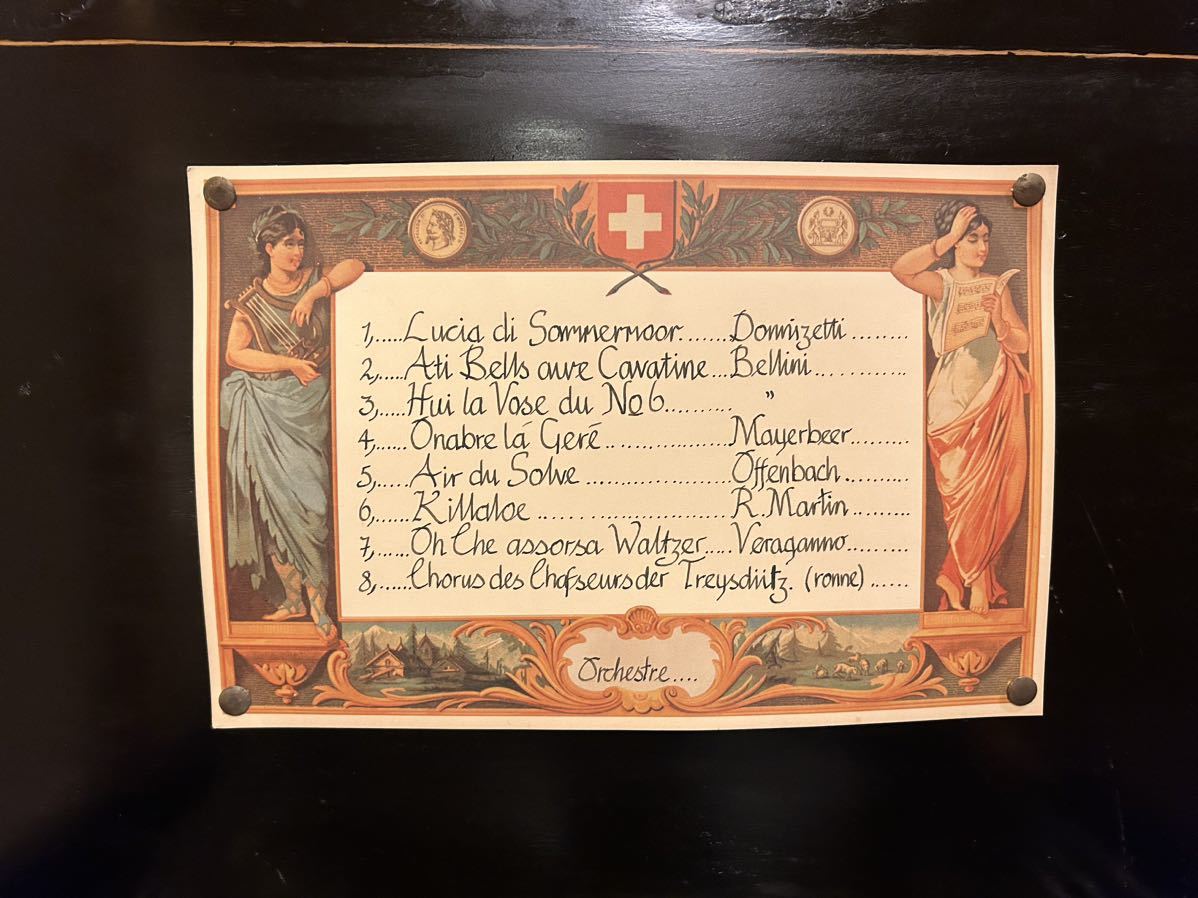 1,.....Lucia di Sammermoor.......Donnizetti........
2,....Ati Bells awe Cavatine...Bellini............
3,.....Hui la Vose du No 6.......... "
4,......Onabre lá Geré................Mayerbeer.........
5,.....Air du Solve....................Offenbach..........
6,......Killaloe........................R.Martin.........
7,.....Oh Che assorsa Waltzer.....Veraganno.........
8,......Chorus des Chasseurs der Treysdütz. (ronne)......
Orchestre....